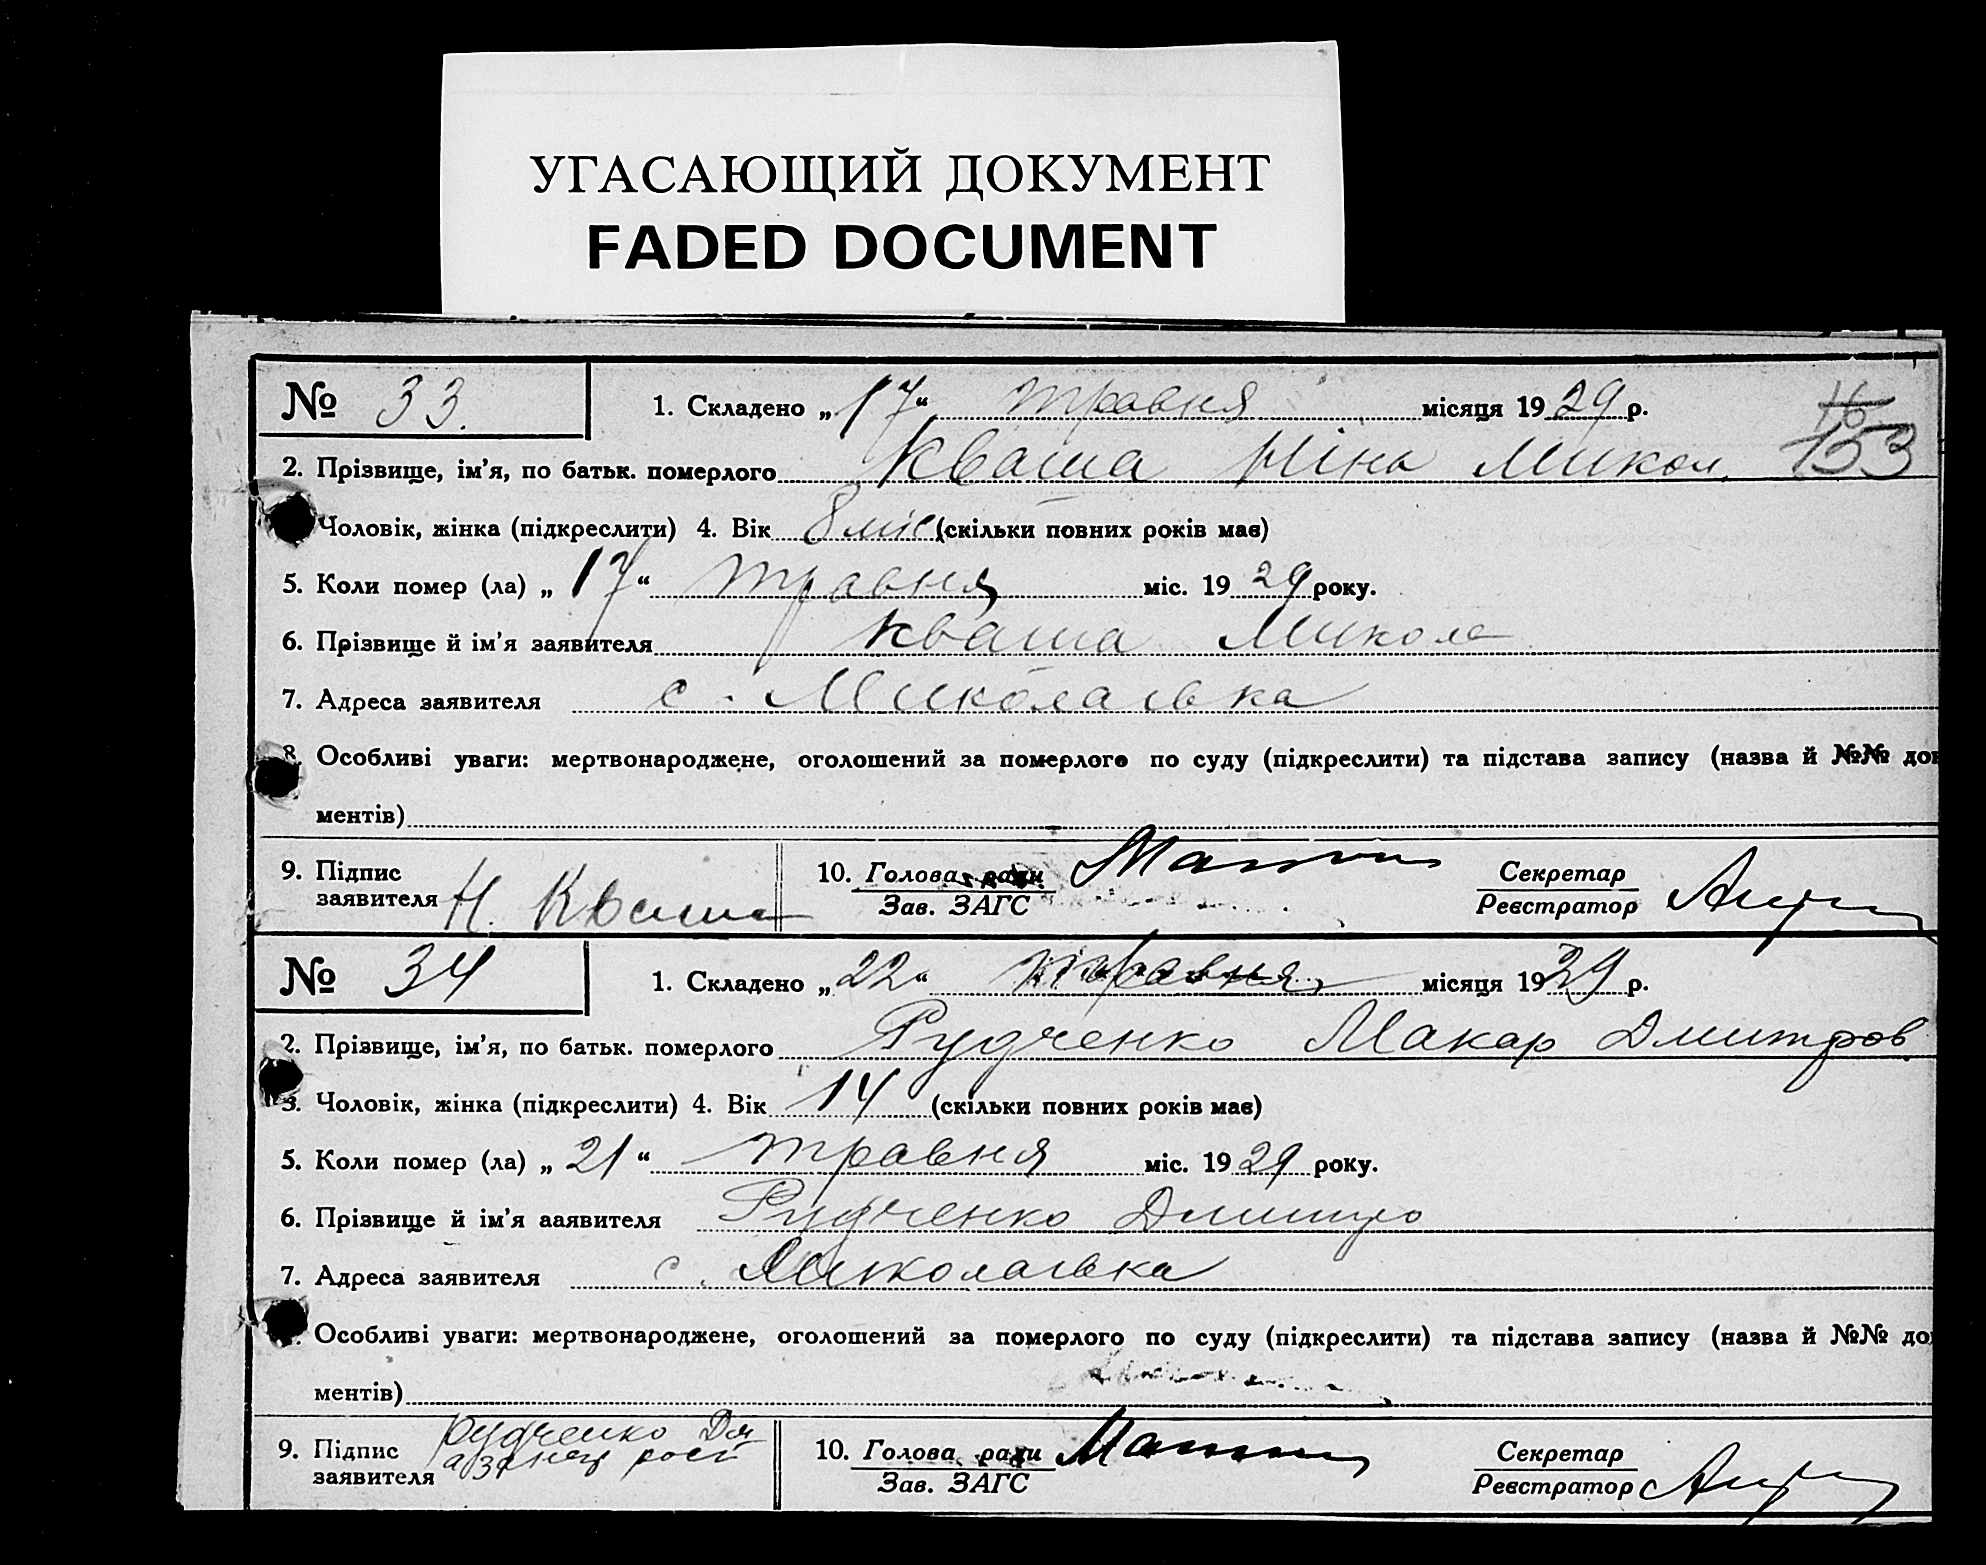 УГАСАЮЩИЙ ДОКУМЕНТ
FADED DOCUMENT
№ 33. 1. Складено „17“ травня місяця 1929 р.
153
2. Прізвище, ім'я, по батьк. померлого Кваша Ніна Микол.
Чоловік, жінка (підкреслити) 4. Вік 8 міс (скільки повних років має)
5. Коли помер (ла) „17“ травня міс. 1929 року.
6. Прізвище й ім'я заявителя Кваша Микола
7. Адреса заявителя с. Миколаївка
8. Особливі уваги: мертвонароджене, оголошений за померлого по суду (підкреслити) та підстава запису (назва й №№ док
ментів)
9. Підпис заявителя Н. Кваша 10. Голова ради Секретар
Зав. ЗАГС Реєстратор
№ 34 1. Складено „22“ травня місяця 1929 р.
2. Прізвище, ім'я, по батьк. померлого Рудченко Макар Дмитров
3. Чоловік, жінка (підкреслити) 4. Вік 14 (скільки повних років має)
5. Коли помер (ла) „21“ травня міс. 1929 року.
6. Прізвище й ім'я ааявителя Рудченко Дмитро
7. Адреса заявителя с. Миколаївка
Особливі уваги: мертвонароджене, оголошений за померлого по суду (підкреслити) та підстава запису (назва й №№ док
ментів)
9. Підпис заявителя Рудченко Дм 10. Голова ради Секретар
Зав. ЗАГС Реєстратор